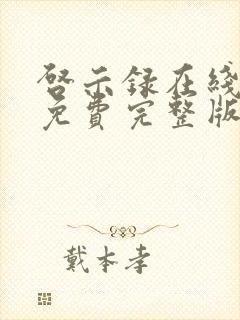 啓示録在綫
免費完整版
戴本孝